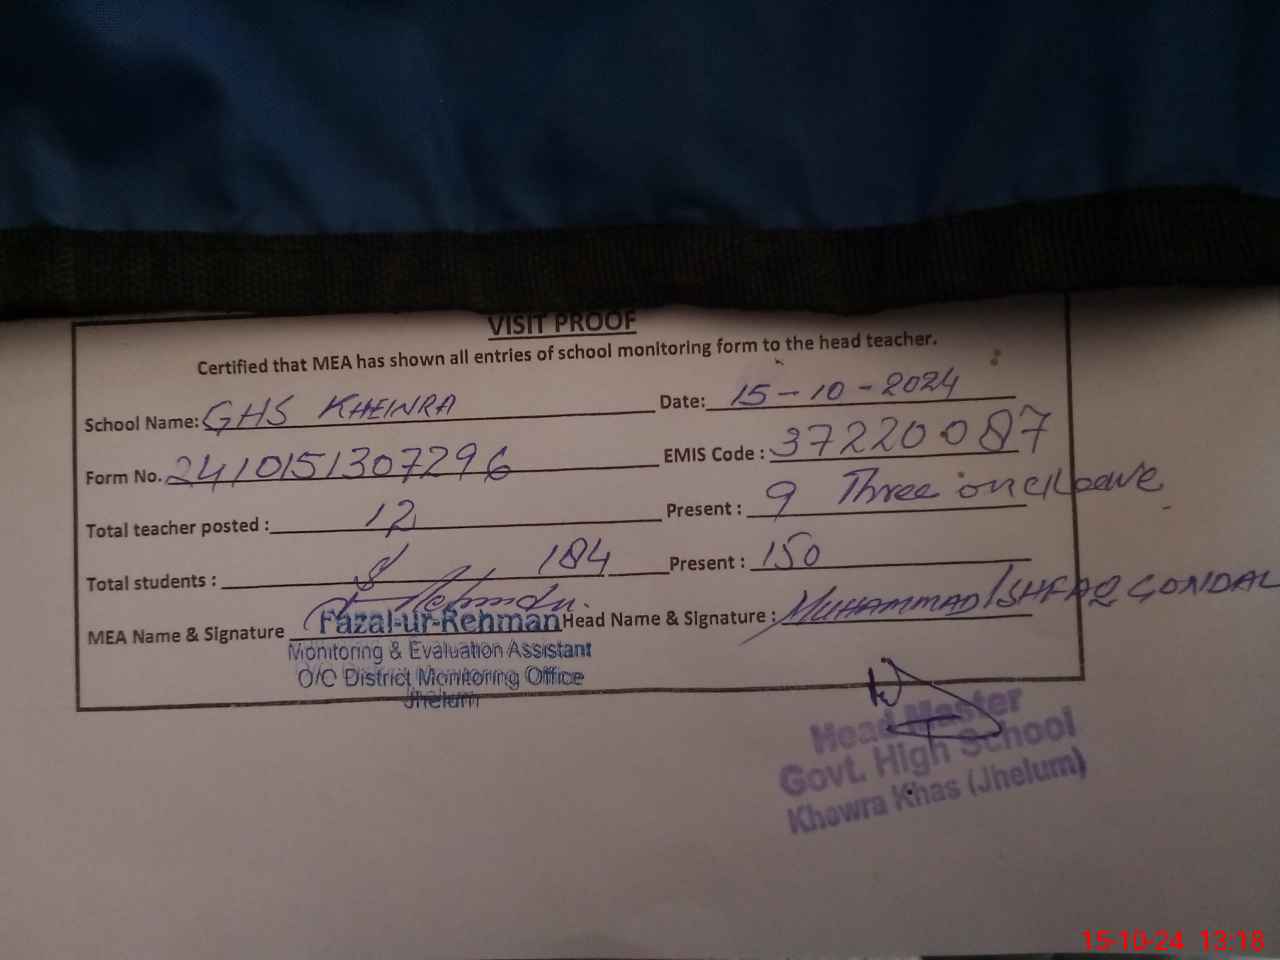 VISIT PROOF
Certified that MEA has shown all entries of school monitoring form to the head teacher.
School Name: GHS KHEWRA Date: 15-10-2024
Form No. 2410151307296 EMIS Code : 37220087
Total teacher posted : 12 Present : 9 Three on leave
Total students : 184 Present : 150
MEA Name & Signature Fazal-ur-Rehman Head Name & Signature : MUHAMMAD ISHFAQ GONDAL
Monitoring & Evaluation Assistant
O/C District Monitoring Office
Jhelum
Head Master
Govt. High School
Khewra Khas (Jhelum)
15-10-24 13:18